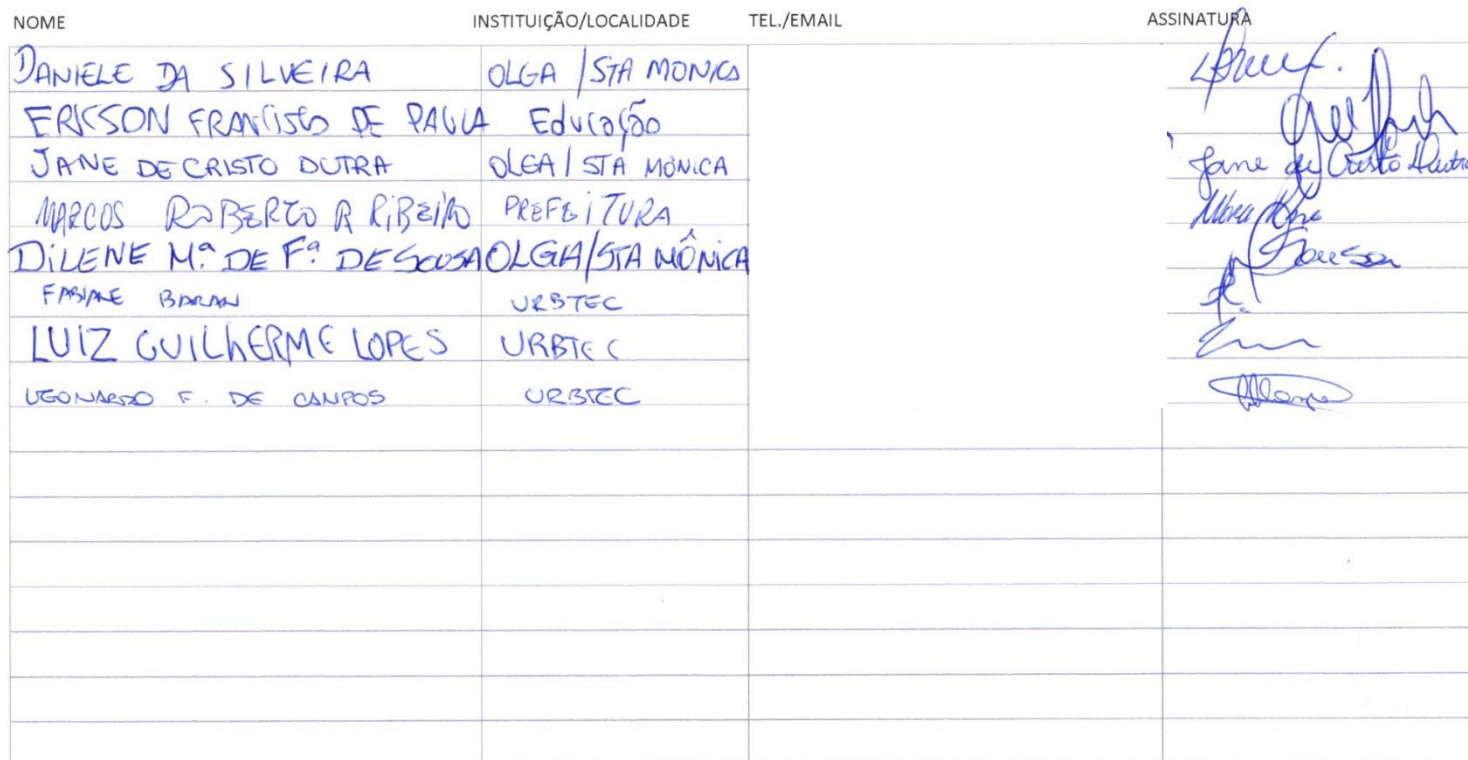 NOME INSTITUIÇÃO/LOCALIDADE TEL./EMAIL ASSINATURA
DANIELE DA SILVEIRA OLGA / STA MONICA
ERICSON FRANCISCO DE PAULA Educação
JANE DE CRISTO DUTRA OLGA / STA MÔNICA Jane de Cristo Dutra
MARCOS ROBERTO R RIBEIRO PREFEITURA
DILENE Mª DE Fª DE SOUSA OLGA/STA MÔNICA Sousa
FABIANE BARAN URBTEC
LUIZ GUILHERME LOPES URBTEC
LEONARDO F. DE CAMPOS URBTEC